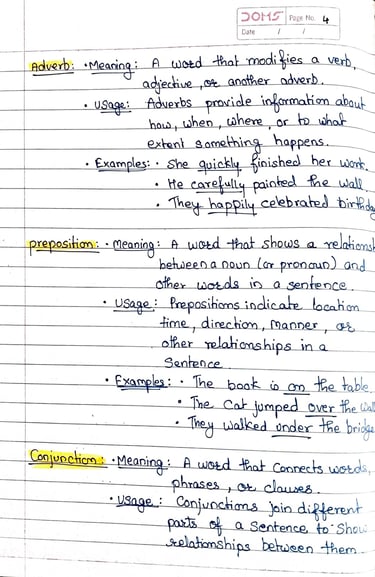 DOMS Page No. 4
Date / /
Adverb: • Meaning: A word that modifies a verb,
adjective, or another adverb.
• Usage: Adverbs provide information about
how, when, where, or to what
extent something happens.
• Examples: • She quickly finished her work.
• He carefully painted the wall.
• They happily celebrated birthday
preposition: • Meaning: A word that shows a relations
between a noun (or pronoun) and
other words in a sentence.
• Usage: Prepositions indicate location
time, direction, manner, or
other relationships in a
sentence.
• Examples: • The book is on the table
• The Cat jumped over the wall
• They walked under the bridge
Conjunction: • Meaning: A word that connects words,
phrases, or clauses.
• Usage: Conjunctions join different
parts of a sentence to show
relationships between them.